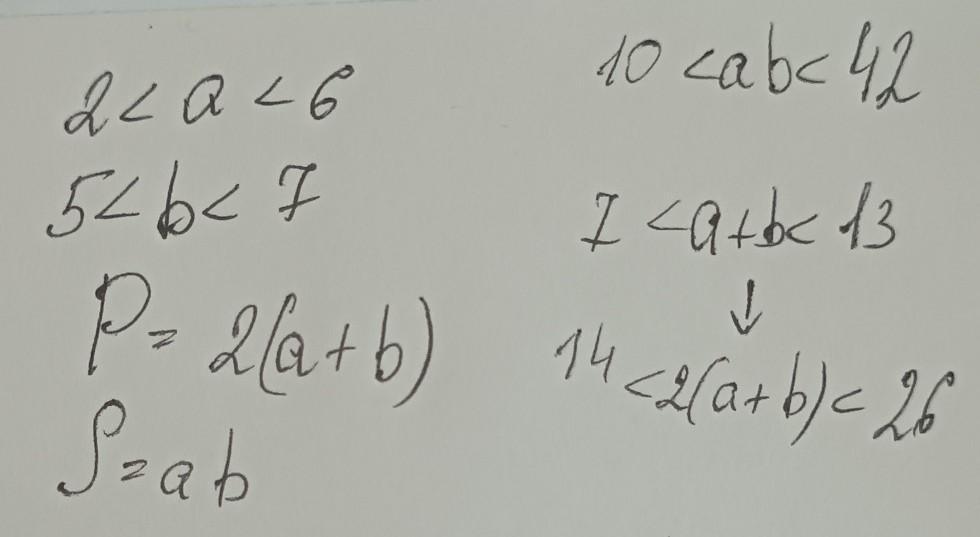 2 < a < 6
5 < b < 7
P = 2(a + b)
S = ab
10 < ab < 42
7 < a + b < 13
↓
14 < 2(a + b) < 26